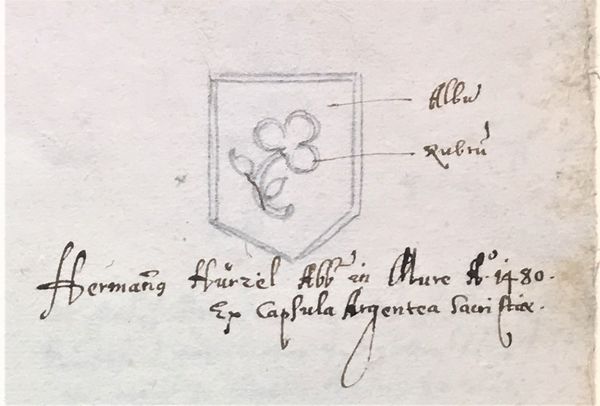 Albū
Rubrū
Hermanꝰ Hürzel Abb. in Mure Aº 1480.
Ex Capsula Argentea Sacristiæ.